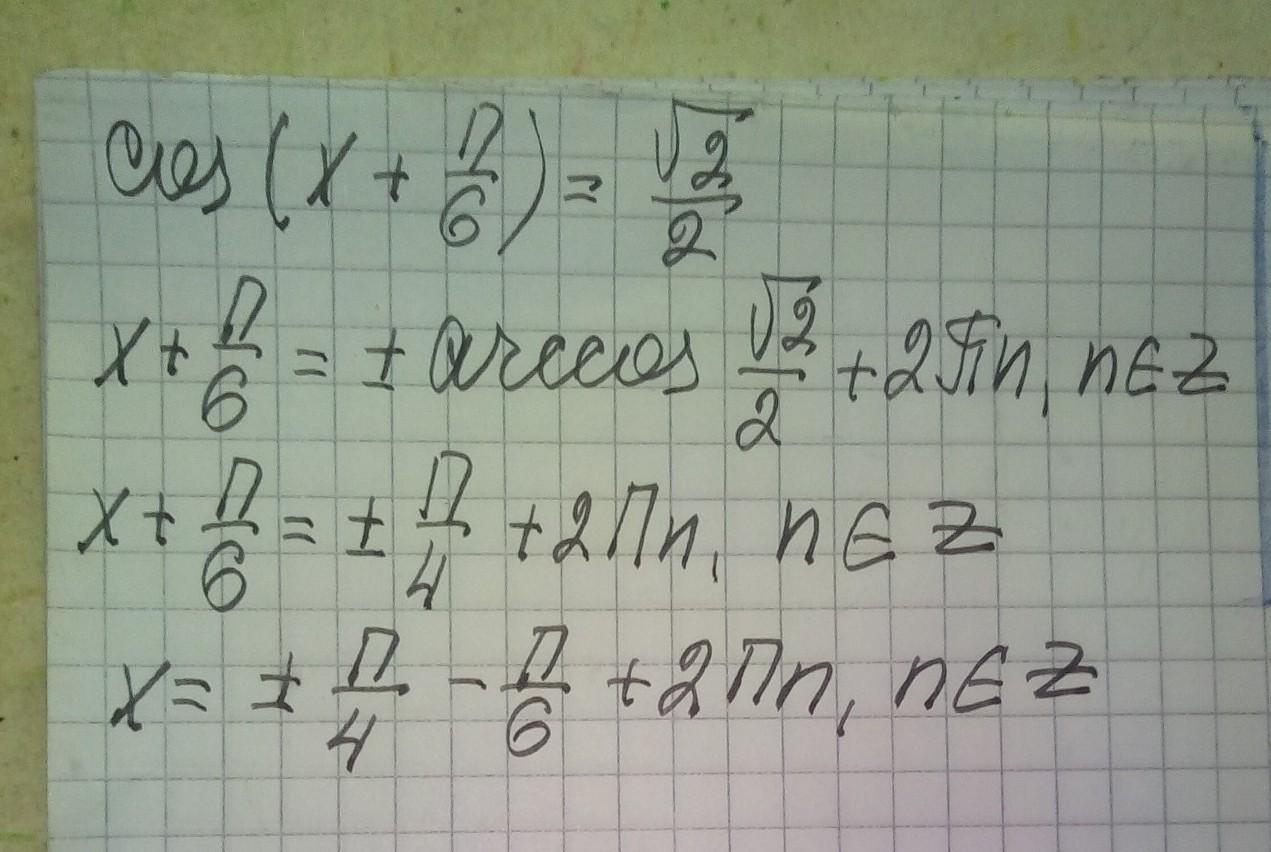 cos(x + π/6) = √2/2
x + π/6 = ± arccos √2/2 + 2πn, n ∈ Z
x + π/6 = ± π/4 + 2πn, n ∈ Z
x = ± π/4 - π/6 + 2πn, n ∈ Z